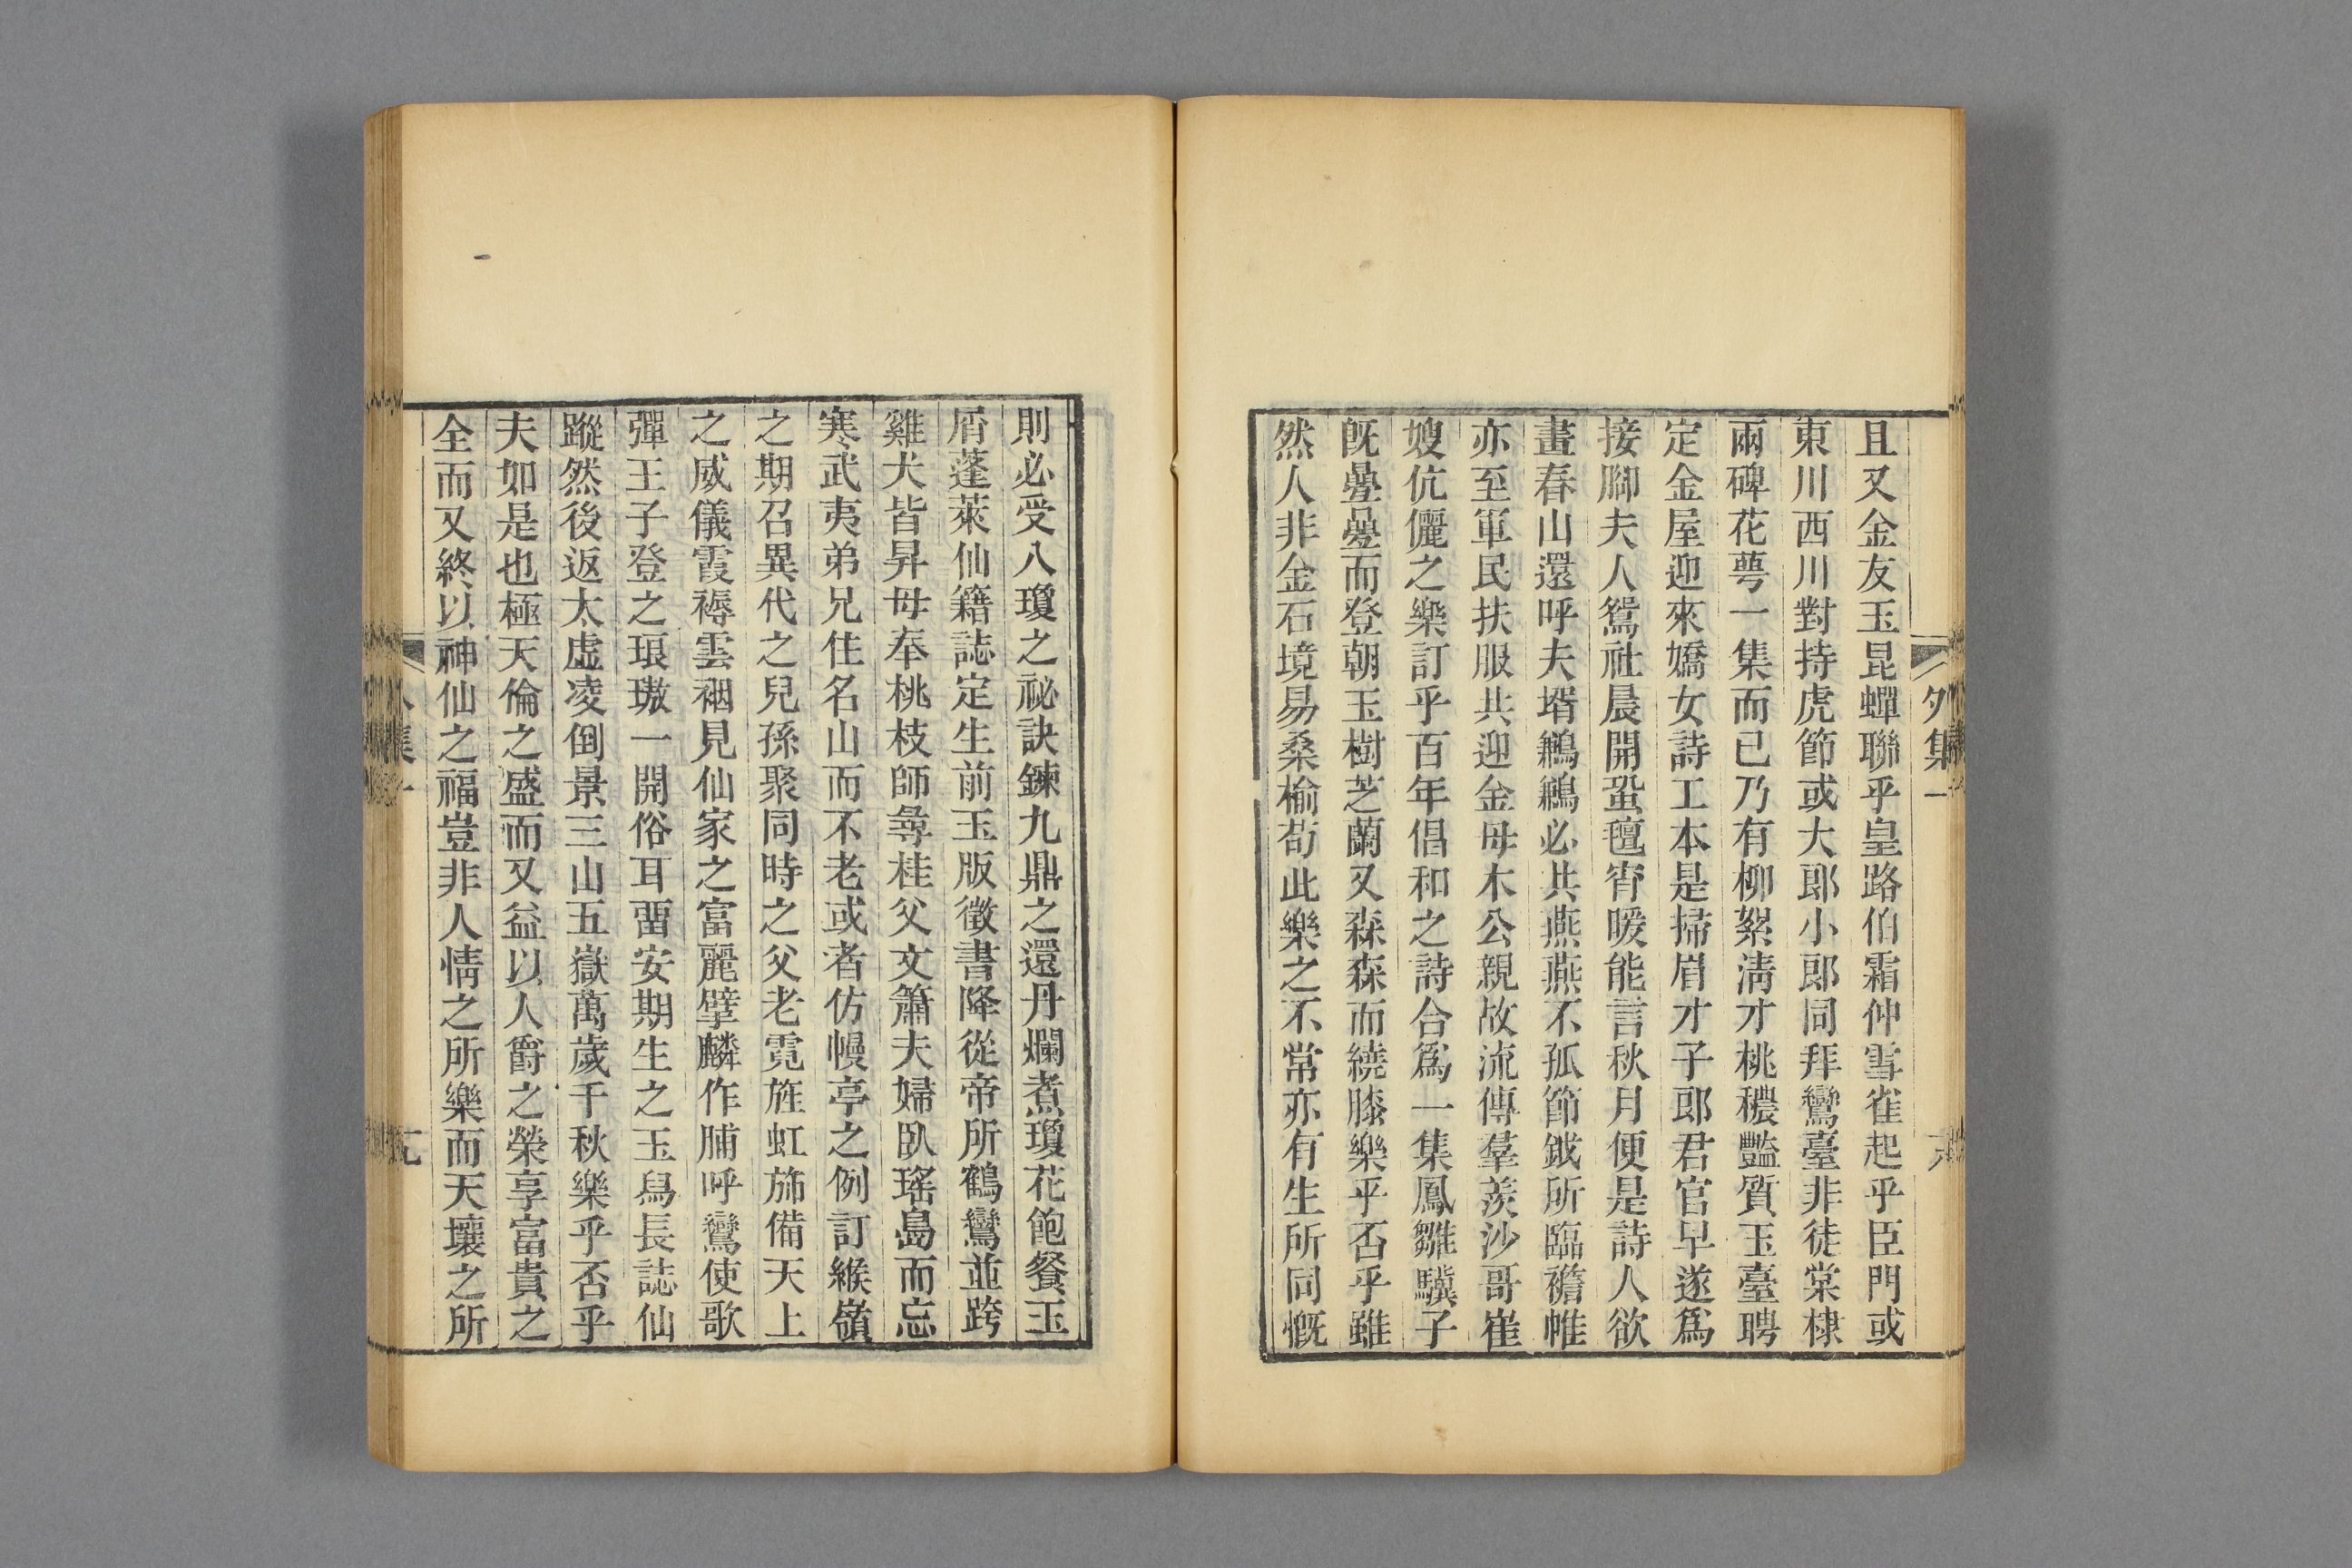 外集一
且又金友玉昆蟬聯乎皇路伯霜仲雪雀起乎臣門或
東川西川對持虎節或大郎小郎同拜鸞臺非徒棠棣
兩碑花萼一集而已乃有柳絮清才桃穠豔質玉臺聘
定金屋迎來嬌女詩工本是掃眉才子郎君官早遂爲
接腳夫人鴛社晨開蛩氊宵暖能言秋月便是詩人欲
畫春山還呼夫壻鶼鶼必共燕燕不孤節鉞所臨襜帷
亦至軍民扶服共迎金母木公親故流傳羣羨沙哥崔
嫂伉儷之樂訂乎百年倡和之詩合爲一集鳳雛驥子
旣疊疊而登朝玉樹芝蘭又森森而繞膝樂乎否乎雖
然人非金石境易桑榆茍此樂之不常亦有生所同慨
則必受八瓊之祕訣鍊九鼎之還丹爛煮瓊花飽餐玉
屑蓬萊仙籍誌定生前玉版徵書降從帝所鶴鸞並跨
雞犬皆昇母奉桃枝師尋桂父文簫夫婦臥瑤島而忘
寒武夷弟兄住名山而不老或者仿幔亭之例訂緱嶺
之期召異代之兒孫聚同時之父老霓旌虹斾備天上
之威儀霞褥雲裀見仙家之富麗擘麟作脯呼鸞使歌
彈王子登之琅璈一開俗耳畱安期生之玉舄長誌仙
蹤然後返太虛凌倒景三山五嶽萬歲千秋樂乎否乎
夫如是也極天倫之盛而又益以人爵之榮享富貴之
全而又終以神仙之福豈非人情之所樂而天壤之所